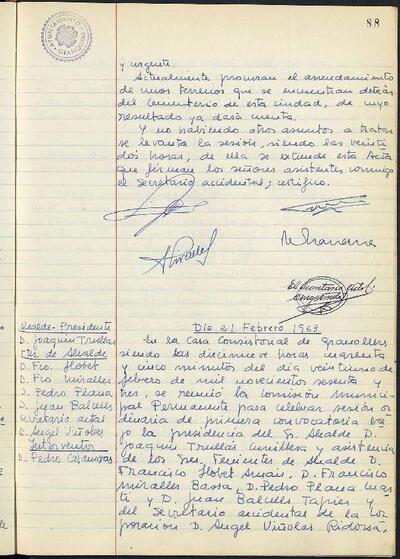 88
AYUNTAMIENTO
GRANOLLERS
y urgente.
Actualmente procuran el arrendamiento
de unos terrenos que se encuentran detrás
del Cementerio de esta ciudad, de cuyo
resultado ya dará cuenta.
Y no habiendo otros asuntos a tratar
se levanta la sesión, siendo las veinti
dos horas, de ella se extiende esta Acta
que firman los señores asistentes conmigo
el Secretario accidental; certifico.
El Secretario actal.
Día 21 Febrero 1963
Alcalde-Presidente
D. Joaquin Trullás
Tts. de Alcalde
D. Fco. Llobet
D. Fco. Miralles
D. Pedro Plana
D. Juan Balcells
Secretario actal
D. Angel Viñolas
Interventor
D. Pedro
En la Casa Consistorial de Granollers
siendo las diecinueve horas cuarenta
y cinco minutos del día veintiuno de
febrero de mil novecientos sesenta y
tres, se reunió la Comisión Munici
pal Permanente para celebrar sesión or
dinaria de primera convocatoria ba
jo la presidencia del Sr. Alcalde D.
Joaquin Trullás y asistencia
de los Sres. Tenientes de Alcalde D.
Francisco Llobet Arnan, D. Francisco
Miralles Bassa, D. Pedro Plana Mar
ti y D. Juan Balcells Tapies y
del Secretario accidental de la Cor
poración D. Angel Viñolas Ridorsa,